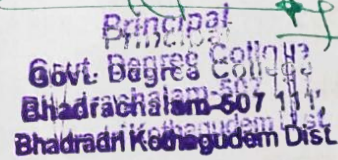 Principal
Govt. Degree College
Bhadrachalam-507 111,
Bhadradri Kothagudem Dist.